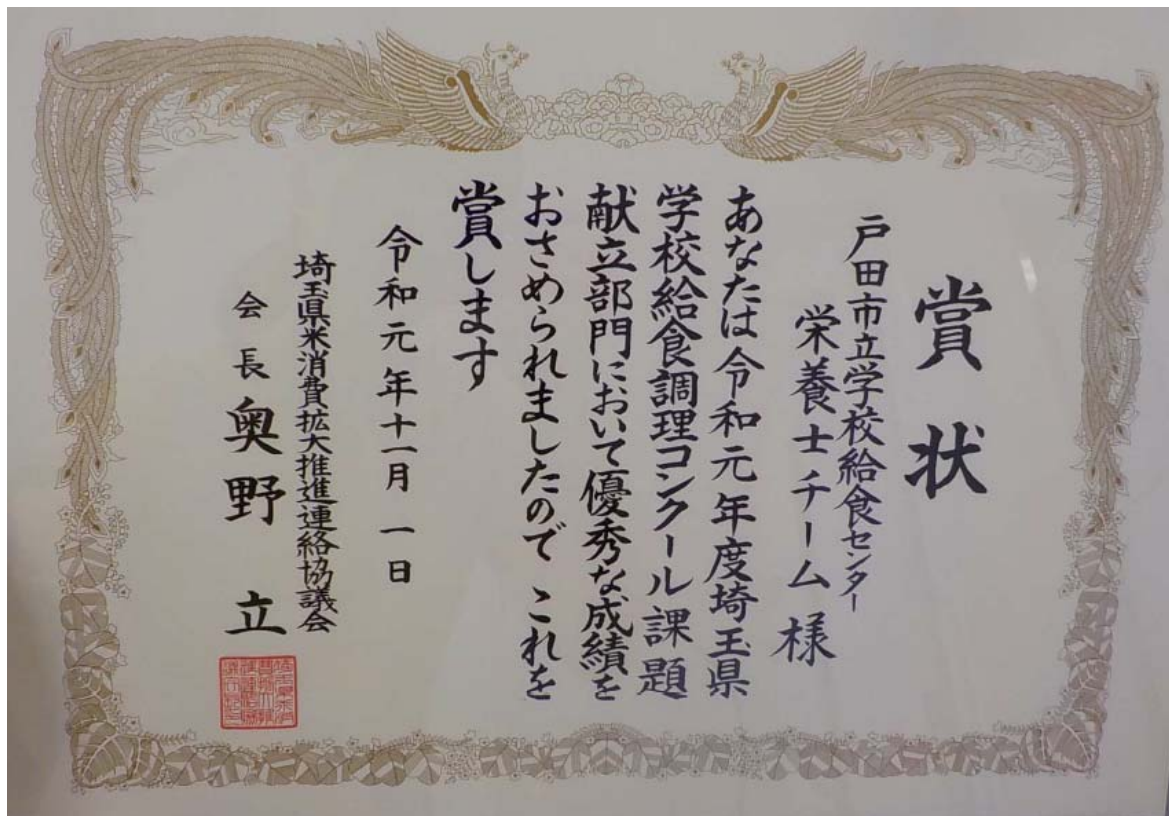 賞状
戸田市立学校給食センター
栄養士チーム 様
あなたは令和元年度埼玉県
学校給食調理コンクール課題
献立部門において優秀な成績を
おさめられましたので これを
賞します
令和元年十一月一日
埼玉県米消費拡大推進連絡協議会
会長 奥野 立